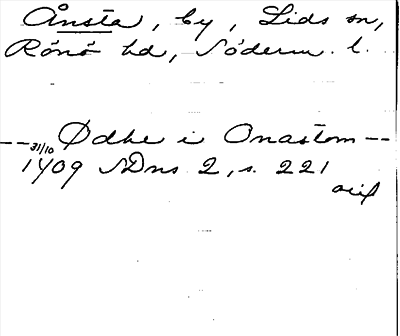 Ånsta, by, Lids sn,
Rönö hd, Söderm. l.
-- Ødhe i Onastom --
31/10 1409 SDns 2, s. 221
orig